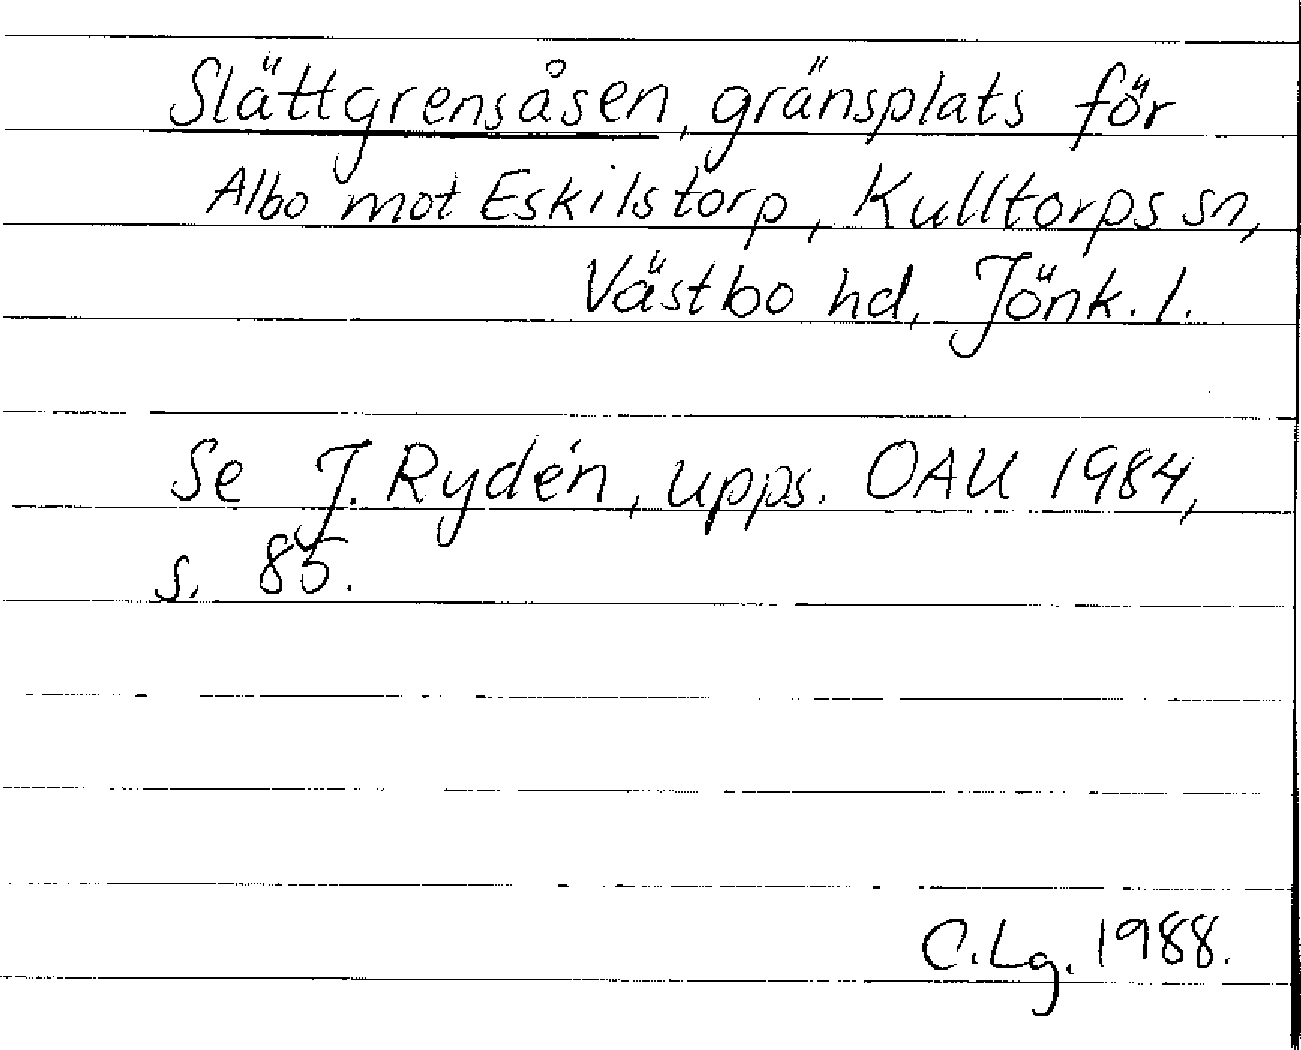 Slättgrensåsen, gränsplats för
Albo mot Eskilstorp, Kulltorps sn,
Västbo hd, Jönk. l.
Se J. Rydén, upps. OAU 1984,
s. 85.
C.Lg. 1988.